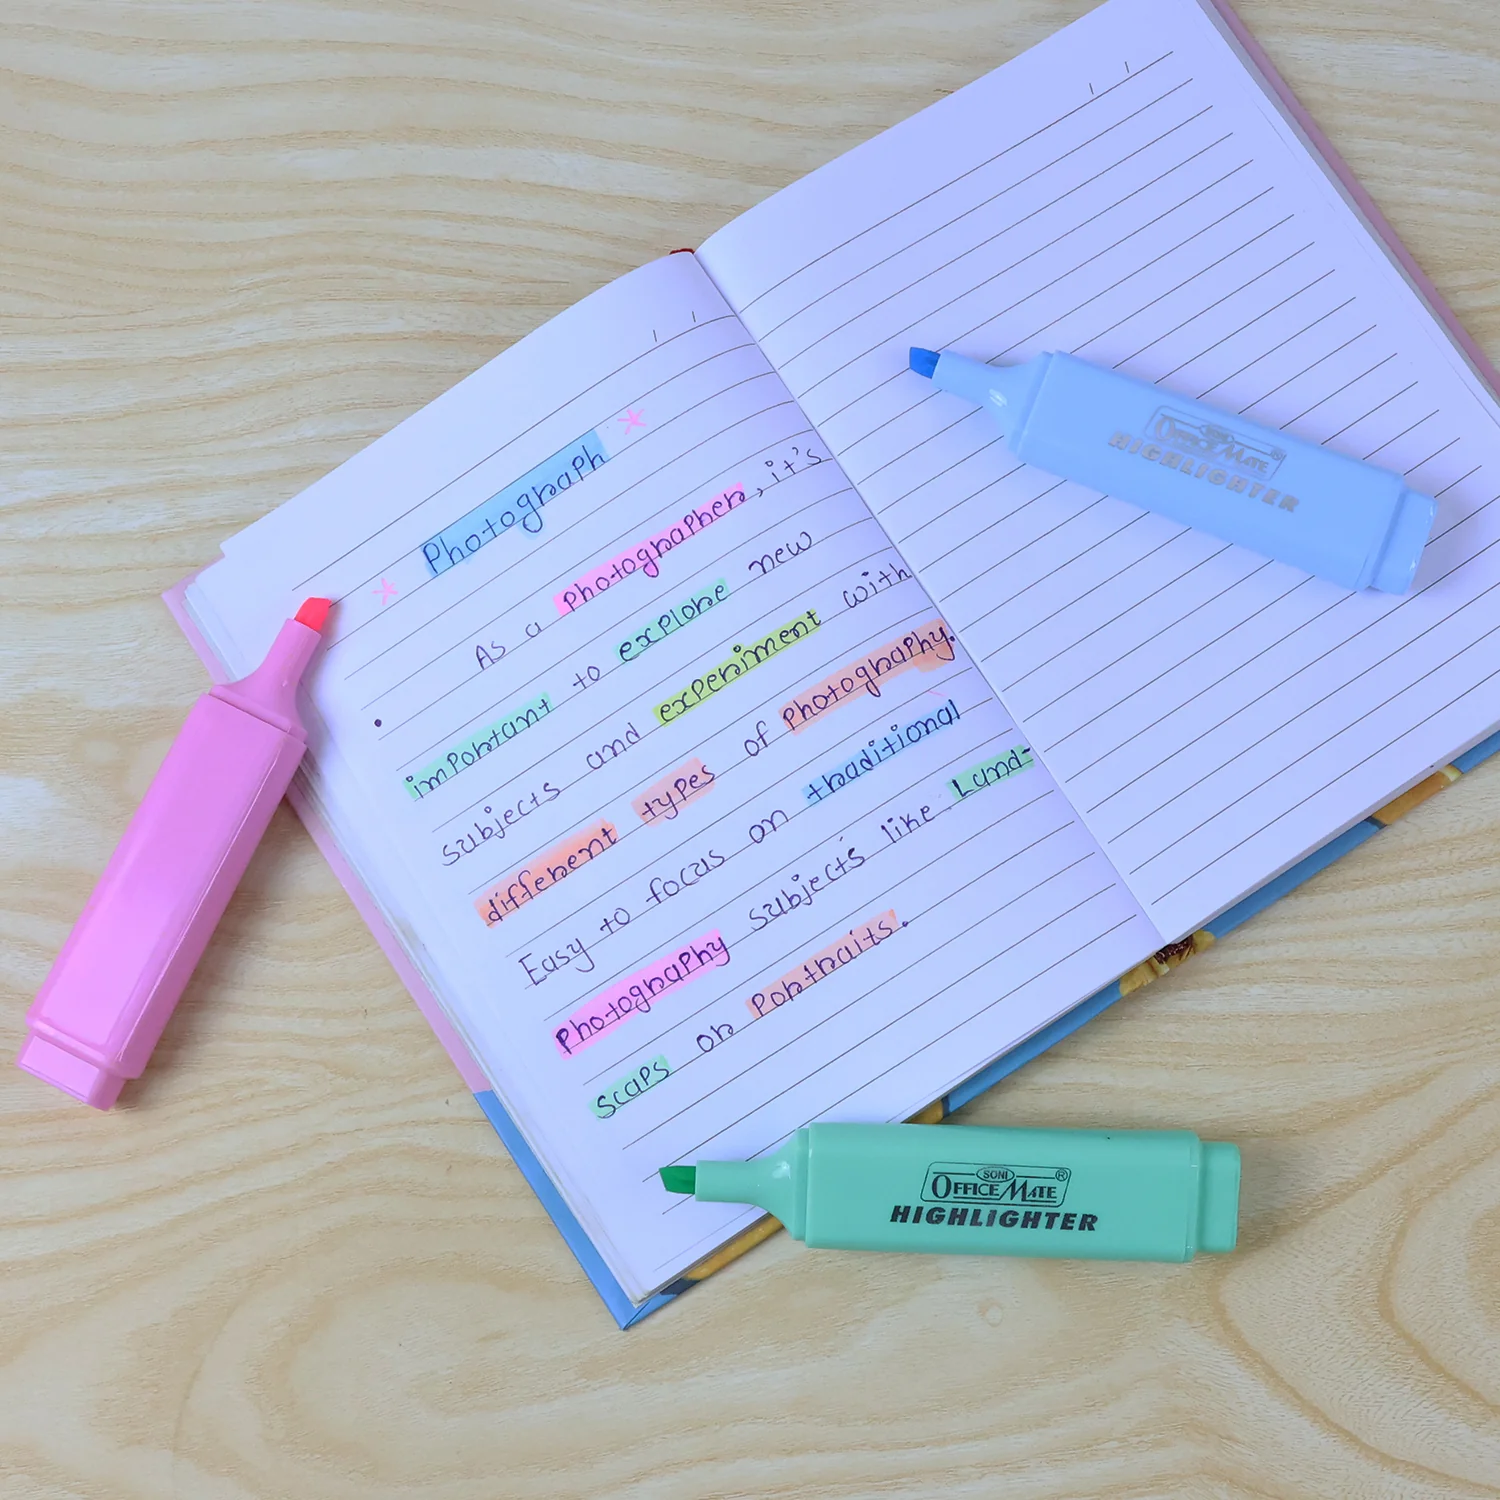 Photograph
As a Photographer, it's
important to explore new
subjects and experiment with
different types of Photography.
Easy to focus on traditional
Photography subjects like Land-
scaps or Portraits.
SONI
OFFICE MATE ®
HIGHLIGHTER
SONI
OFFICE MATE ®
HIGHLIGHTER